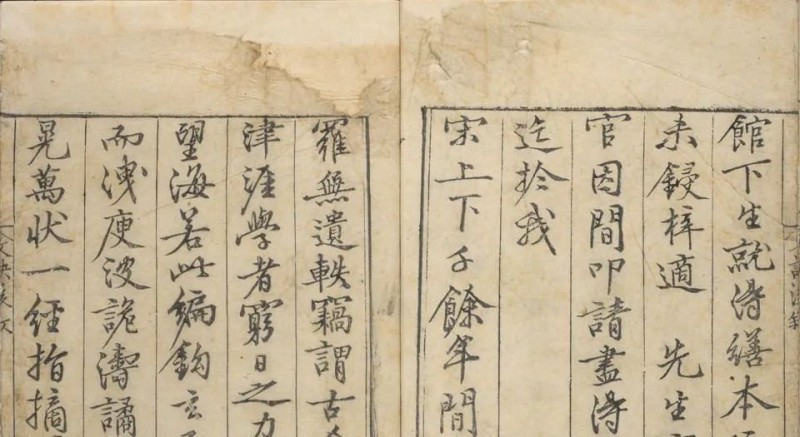 館下生就淂繕本
未鋟梓適 先生
官因間叩請盡淂
迄於我
宋上下千餘年間
羅無遺軼竊謂古
津涯學者窮日之力
望海若此編鈎玄
而洩庾波詭濤譎
晃萬狀一經指摘